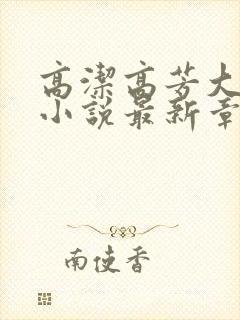 高潔高芳大
小說最新章
南使香